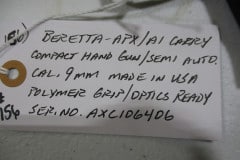 156) BERETTA-APX/A1 CARRY
COMPACT HAND GUN/SEMI AUTO.
CAL. 9MM MADE IN USA
POLYMER GRIP/OPTICS READY
SER.NO. AXC106406
#
156